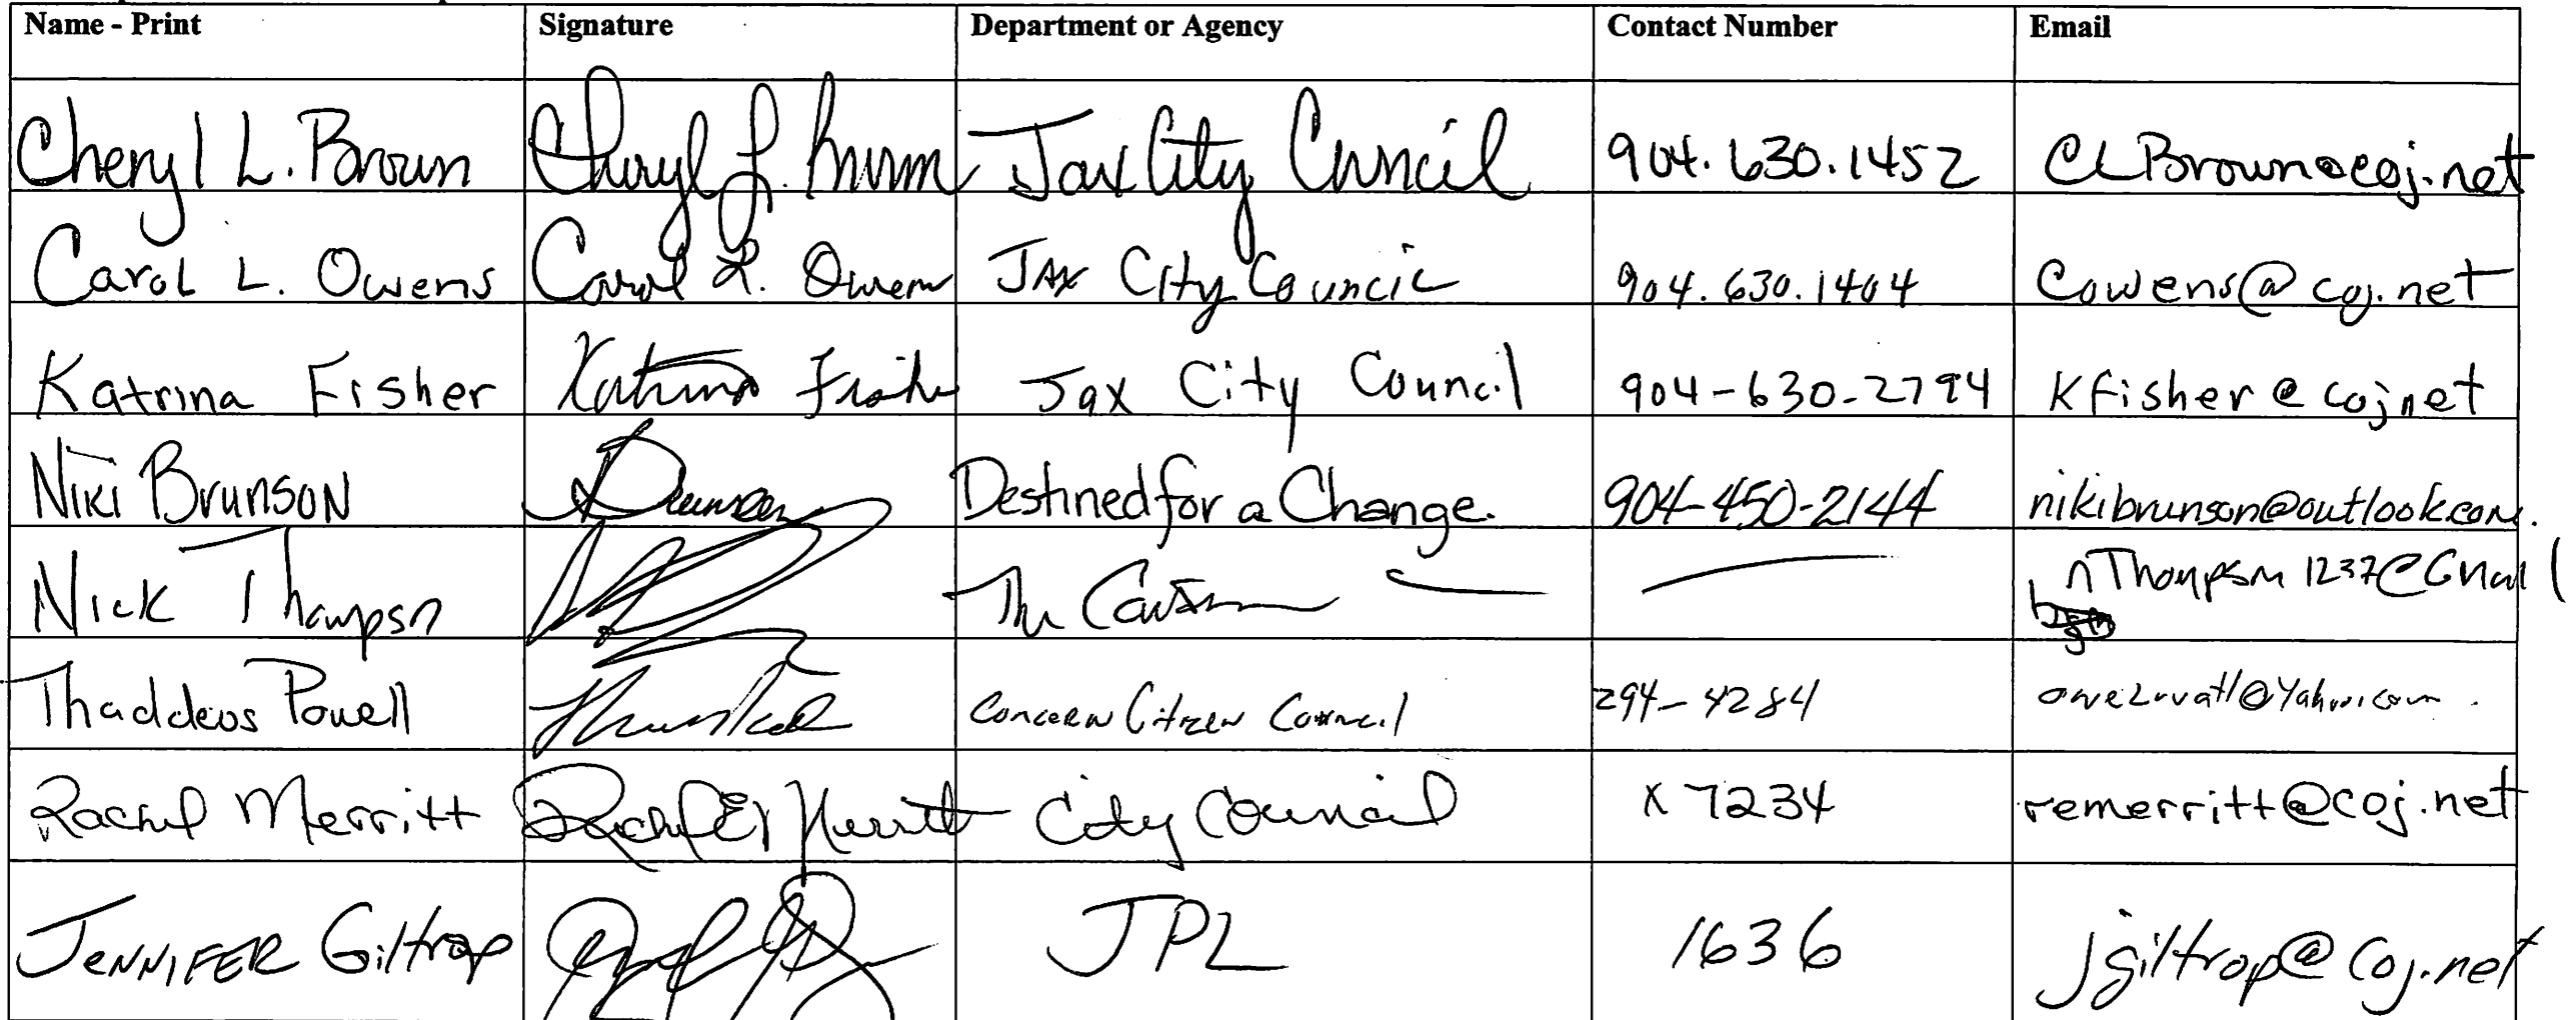 Name - Print Signature Department or Agency Contact Number Email
Cheryl L. Brown Cheryl L. Brown Jax City Council 904.630.1452 CLBrown@coj.net
Carol L. Owens Carol L. Owens Jax City Council 904.630.1404 Cowens@coj.net
Katrina Fisher Katrina Fisher Jax City Council 904-630-2794 Kfisher@coj.net
Niki Brunson Brunson Destined for a Change. 904-450-2144 nikibrunson@outlook.com.
Nick Thompson The nThompson1237@Gmail
Thaddeus Powell Concern Citizen Council 294-4284
Rachel Merritt Rachel E Merritt City Council x 7234 remerritt@coj.net
JENNIFER Giltrop JPL 1636 jgiltrop@coj.net